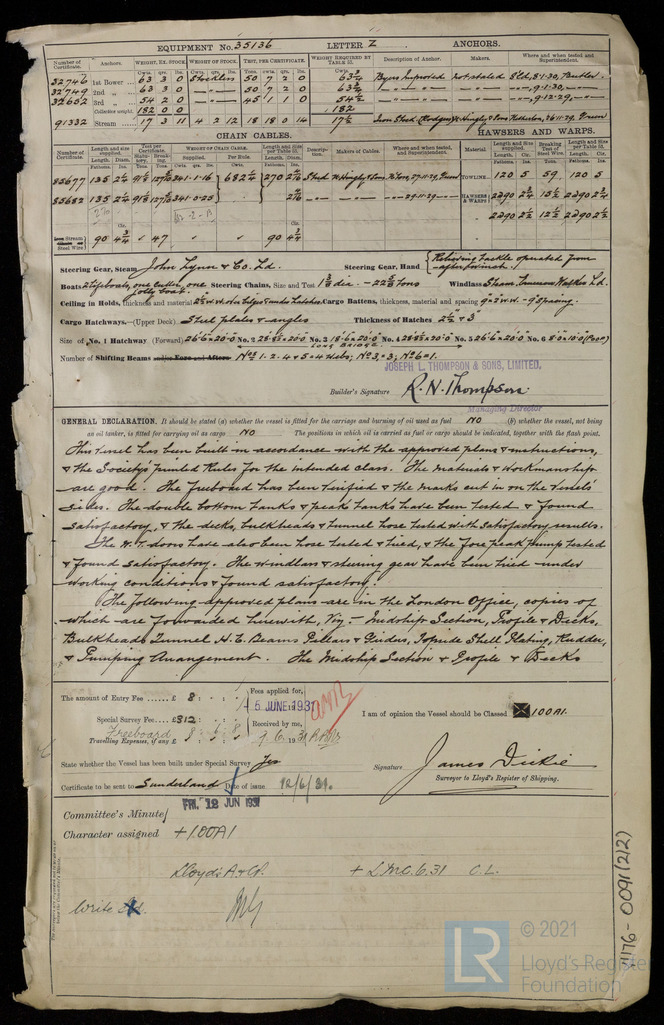 EQUIPMENT No. 35136 LETTER Z ANCHORS.
Number of Certificate. Anchors. WEIGHT, EX. STOCK. WEIGHT OF STOCK. TEST, PER CERTIFICATE. WEIGHT REQUIRED BY TABLE 53. Description of Anchor. Makers. Where and when tested and Superintendent.
52746 1st Bower 63 3 0 Stockless 50 7 2 0 63¾ Byers Improved Not stated S'ld, 8.1.30, Butler.
52749 2nd „ 63 3 0 50 7 2 0 63¾ 9.1.30
52652 3rd „ 54 2 0 45 1 1 0 54½ 9.12.29
Collective weight 182 0 0 182
91332 Stream 17 3 11 4 2 12 18 18 0 14 17½ Iron Stock (Rodgers) N. Hingley & Sons Netherton, 26.11.29, Green
CHAIN CABLES. HAWSERS AND WARPS.
Number of Certificate. Length and size supplied. Test per Certificate. WEIGHT OF CHAIN CABLE. Length and size per Table 53. Description. Makers of Cables. Where and when tested, and Superintendent. Material. Length and Size supplied. Breaking Test of Steel Wire. Length and Size per Table 53.
85677 135 341.1.16 682½ 270 Stud N. Hingley & Sons 27.11.29, Green TOWLINE 120 5 59 120 5
85682 135 341.0.25 29.11.29 HAWSERS & WARPS 2@90 2¾ 15½ 2@90 2¾
2@90 2½ 12½ 2@90 2½
Iron Stream or Steel Wire 90 4¾ 47 90 4¾
Steering Gear, Steam John Lynn & Co. Ld. Steering Gear, Hand Relieving tackle operated from after winch.
Boats 2 Lifeboats, one cutter, one jolly boat. Steering Chains, Size and Test 1⅜ dia. - 22⅝ tons Windlass Steam Emerson Walker Ld.
Ceiling in Holds, thickness and material 2½" W.W. on bilges & under hatches Cargo Battens, thickness, material and spacing 9×2 W.W. - 9" spacing.
Cargo Hatchways.—(Upper Deck) Steel plates & angles Thickness of Hatches 2½" & 3"
Size of No. 1 Hatchway (Forward) 26'6"×20'0" No. 2 28'8½"×20'0" No. 3 18'6"×20'0" No. 4 28'8½"×20'0" No. 5 26'6"×20'0" No. 6 8'0"×10'0" (Poop)
Number of Shifting Beams and/or Fore and Afters Nos 1. 2. 4 & 5 = 4 Webs; No 3 = 3; No 6 = 1.
JOSEPH L. THOMPSON & SONS, LIMITED.
Builder's Signature R. N. Thompson
Managing Director
GENERAL DECLARATION. It should be stated (a) whether the vessel is fitted for the carriage and burning of oil used as fuel NO (b) whether the vessel, not being
an oil tanker, is fitted for carrying oil as cargo NO The positions in which oil is carried as fuel or cargo should be indicated, together with the flash point.
This vessel has been built in accordance with the approved plans & instructions,
& the Society's printed Rules for the intended class. The materials & workmanship
are good. The freeboard has been verified & the marks cut in on the vessel's
sides. The double bottom tanks & peak tanks have been tested & found
satisfactory, & the decks, bulkheads & tunnel hose tested with satisfactory results.
The W.T. doors have also been hose tested & tried, & the fore peak pump tested
& found satisfactory. The windlass & steering gear have been tried under
working conditions & found satisfactory.
The following approved plans are in the London Office, copies of
which are forwarded herewith, viz:- Midship Section, Profile & Decks,
Bulkheads, Tunnel, H.C. Beams, Pillars & Girders, Topside Shell Plating, Rudder,
& Pumping Arrangement. The Midship Section & Profile & Decks
The amount of Entry Fee ...... £ 8 : : Fees applied for,
15 JUNE 1931
Special Survey Fee .... £312 : : Received by me,
Freeboard 8 : 5 : 8
Travelling Expenses, if any £ : : 9. 6. 1931
I am of opinion the Vessel should be Classed ✠ 100A1.
State whether the Vessel has been built under Special Survey Yes
Signature James Dickie
Surveyor to Lloyd's Register of Shipping.
Certificate to be sent to Sunderland Date of issue 12/6/31.
FRI. 12 JUN 1931
Committee's Minute
Character assigned +100A1
Lloyd's A&CP. + LMC. 6.31 C.L.
Write
1176-0091(2/2)
LR © 2021
Lloyd's Register
Foundation